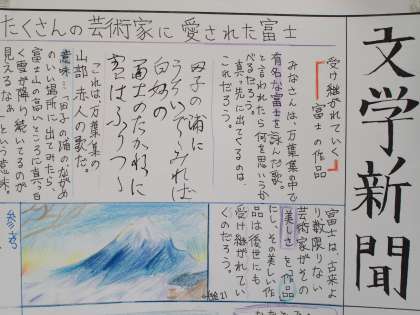 文学新聞
たくさんの芸術家に愛された富士
受け継がれていく
富士の作品
みなさんは、万葉集の中で
有名な富士を詠んだ歌。
と言われたら何を思いうか
べるだろう。
真っ先に出てくるのは、
これだろう。
田子の浦に
うち出でてみれば
白妙の
富士のたかねに
雪はふりつつ
これは、万葉集の歌だ。
山部赤人の歌だ。
意味…田子の浦のながめ
のいい場所に出てみたら、
富士山の高いところに真っ白
く雪が降り続いてるのが
見えるなぁ という意味。
富士は、古来よ
り数限りない
芸術家がその
美しさを作品
にし、その美しい作
品は後世にも
受け継がれてい
くのだろう。
参考